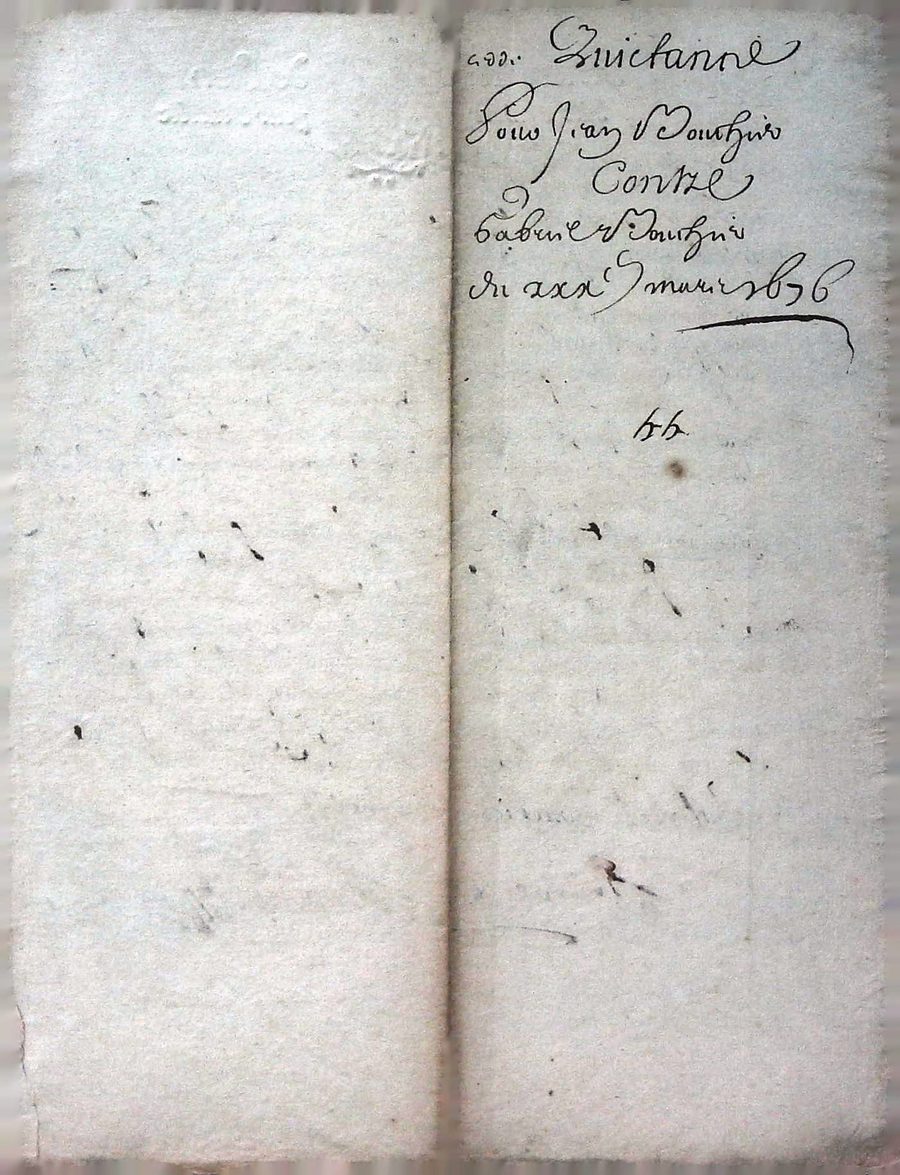 Quictance
Pour Jean Bouchier
Contre
Gabriel Bouchier
du xxxe mars 1676